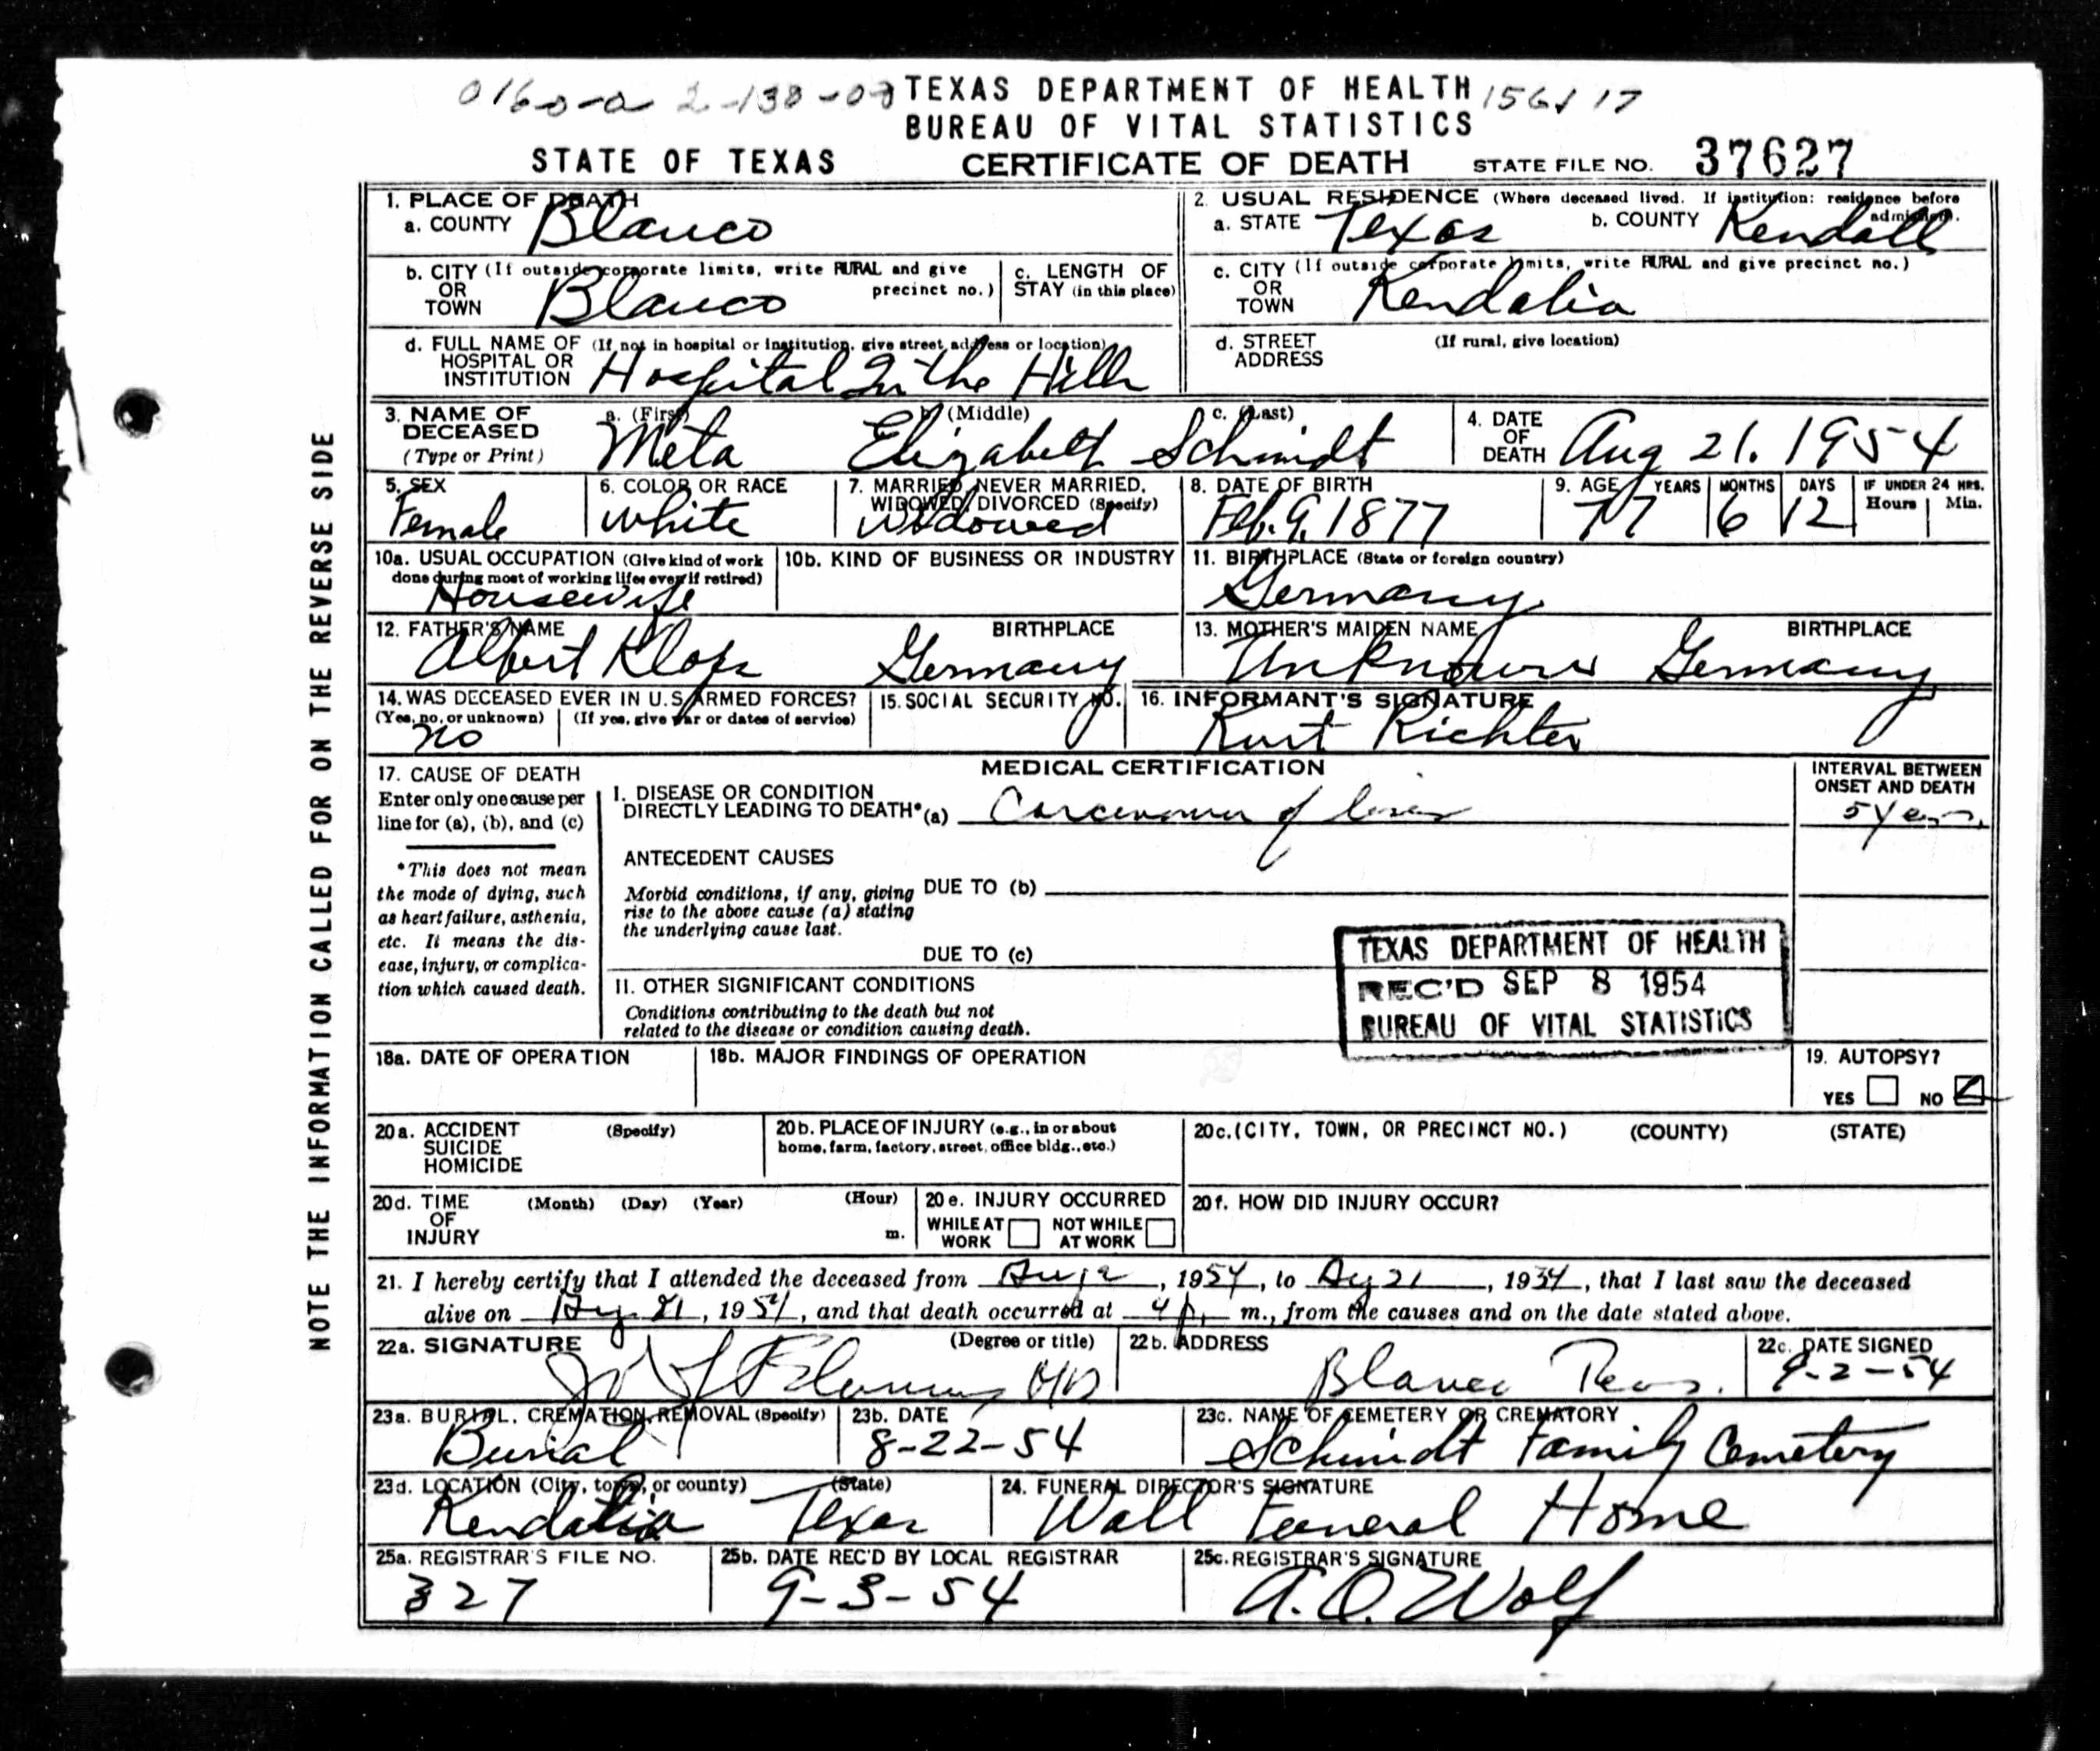 0160-a 2-138-00 TEXAS DEPARTMENT OF HEALTH 156.1 17
BUREAU OF VITAL STATISTICS
STATE OF TEXAS CERTIFICATE OF DEATH STATE FILE NO. 37627
NOTE THE INFORMATION CALLED FOR ON THE REVERSE SIDE
1. PLACE OF DEATH
a. COUNTY Blanco
2. USUAL RESIDENCE (Where deceased lived. If institution: residence before admission).
a. STATE Texas b. COUNTY Kendall
b. CITY (If outside corporate limits, write RURAL and give precinct no.)
OR
TOWN Blanco
c. LENGTH OF
STAY (in this place)
c. CITY (If outside corporate limits, write RURAL and give precinct no.)
OR
TOWN Kendalia
d. FULL NAME OF (If not in hospital or institution, give street address or location)
HOSPITAL OR
INSTITUTION Hospital In the Hills
d. STREET (If rural, give location)
ADDRESS
3. NAME OF a. (First) b. (Middle) c. (Last)
DECEASED
(Type or Print) Meta Elizabeth Schmidt
4. DATE
OF
DEATH Aug 21. 1954
5. SEX
Female
6. COLOR OR RACE
White
7. MARRIED, NEVER MARRIED,
WIDOWED, DIVORCED (Specify)
Widowed
8. DATE OF BIRTH
Feb. 9, 1877
9. AGE YEARS MONTHS DAYS IF UNDER 24 HRS.
Hours Min.
77 6 12
10a. USUAL OCCUPATION (Give kind of work
done during most of working life, even if retired)
Housewife
10b. KIND OF BUSINESS OR INDUSTRY
11. BIRTHPLACE (State or foreign country)
Germany
12. FATHER'S NAME BIRTHPLACE
Albert Germany
13. MOTHER'S MAIDEN NAME BIRTHPLACE
Unknown Germany
14. WAS DECEASED EVER IN U.S. ARMED FORCES?
(Yes, no, or unknown) (If yes, give war or dates of service)
no
15. SOCIAL SECURITY NO.
16. INFORMANT'S SIGNATURE
Kurt Richter
17. CAUSE OF DEATH
Enter only one cause per
line for (a), (b), and (c)
*This does not mean
the mode of dying, such
as heart failure, asthenia,
etc. It means the dis-
ease, injury, or complica-
tion which caused death.
MEDICAL CERTIFICATION
I. DISEASE OR CONDITION
DIRECTLY LEADING TO DEATH* (a) Carcinoma of liver
ANTECEDENT CAUSES
Morbid conditions, if any, giving
rise to the above cause (a) stating
the underlying cause last.
DUE TO (b)
DUE TO (c)
II. OTHER SIGNIFICANT CONDITIONS
Conditions contributing to the death but not
related to the disease or condition causing death.
INTERVAL BETWEEN
ONSET AND DEATH
5 Years
TEXAS DEPARTMENT OF HEALTH
REC'D SEP 8 1954
BUREAU OF VITAL STATISTICS
18a. DATE OF OPERATION
18b. MAJOR FINDINGS OF OPERATION
19. AUTOPSY?
YES NO
20a. ACCIDENT (Specify)
SUICIDE
HOMICIDE
20b. PLACE OF INJURY (e.g., in or about
home, farm, factory, street, office bldg., etc.)
20c. (CITY, TOWN, OR PRECINCT NO.) (COUNTY) (STATE)
20d. TIME (Month) (Day) (Year) (Hour)
OF
INJURY m.
20e. INJURY OCCURRED
WHILE AT WORK NOT WHILE AT WORK
20f. HOW DID INJURY OCCUR?
21. I hereby certify that I attended the deceased from Aug 2, 1954, to Aug 21, 1954, that I last saw the deceased
alive on Aug 21, 1954, and that death occurred at 4 p. m., from the causes and on the date stated above.
22a. SIGNATURE (Degree or title)
MD
22b. ADDRESS
Blanco Texas.
22c. DATE SIGNED
9-2-54
23a. BURIAL, CREMATION, REMOVAL (Specify)
Burial
23b. DATE
8-22-54
23c. NAME OF CEMETERY OR CREMATORY
Schmidt Family Cemetery
23d. LOCATION (City, town, or county) (State)
Kendalia Texas
24. FUNERAL DIRECTOR'S SIGNATURE
Wall Funeral Home
25a. REGISTRAR'S FILE NO.
327
25b. DATE REC'D BY LOCAL REGISTRAR
9-3-54
25c. REGISTRAR'S SIGNATURE
A.O. Wolf